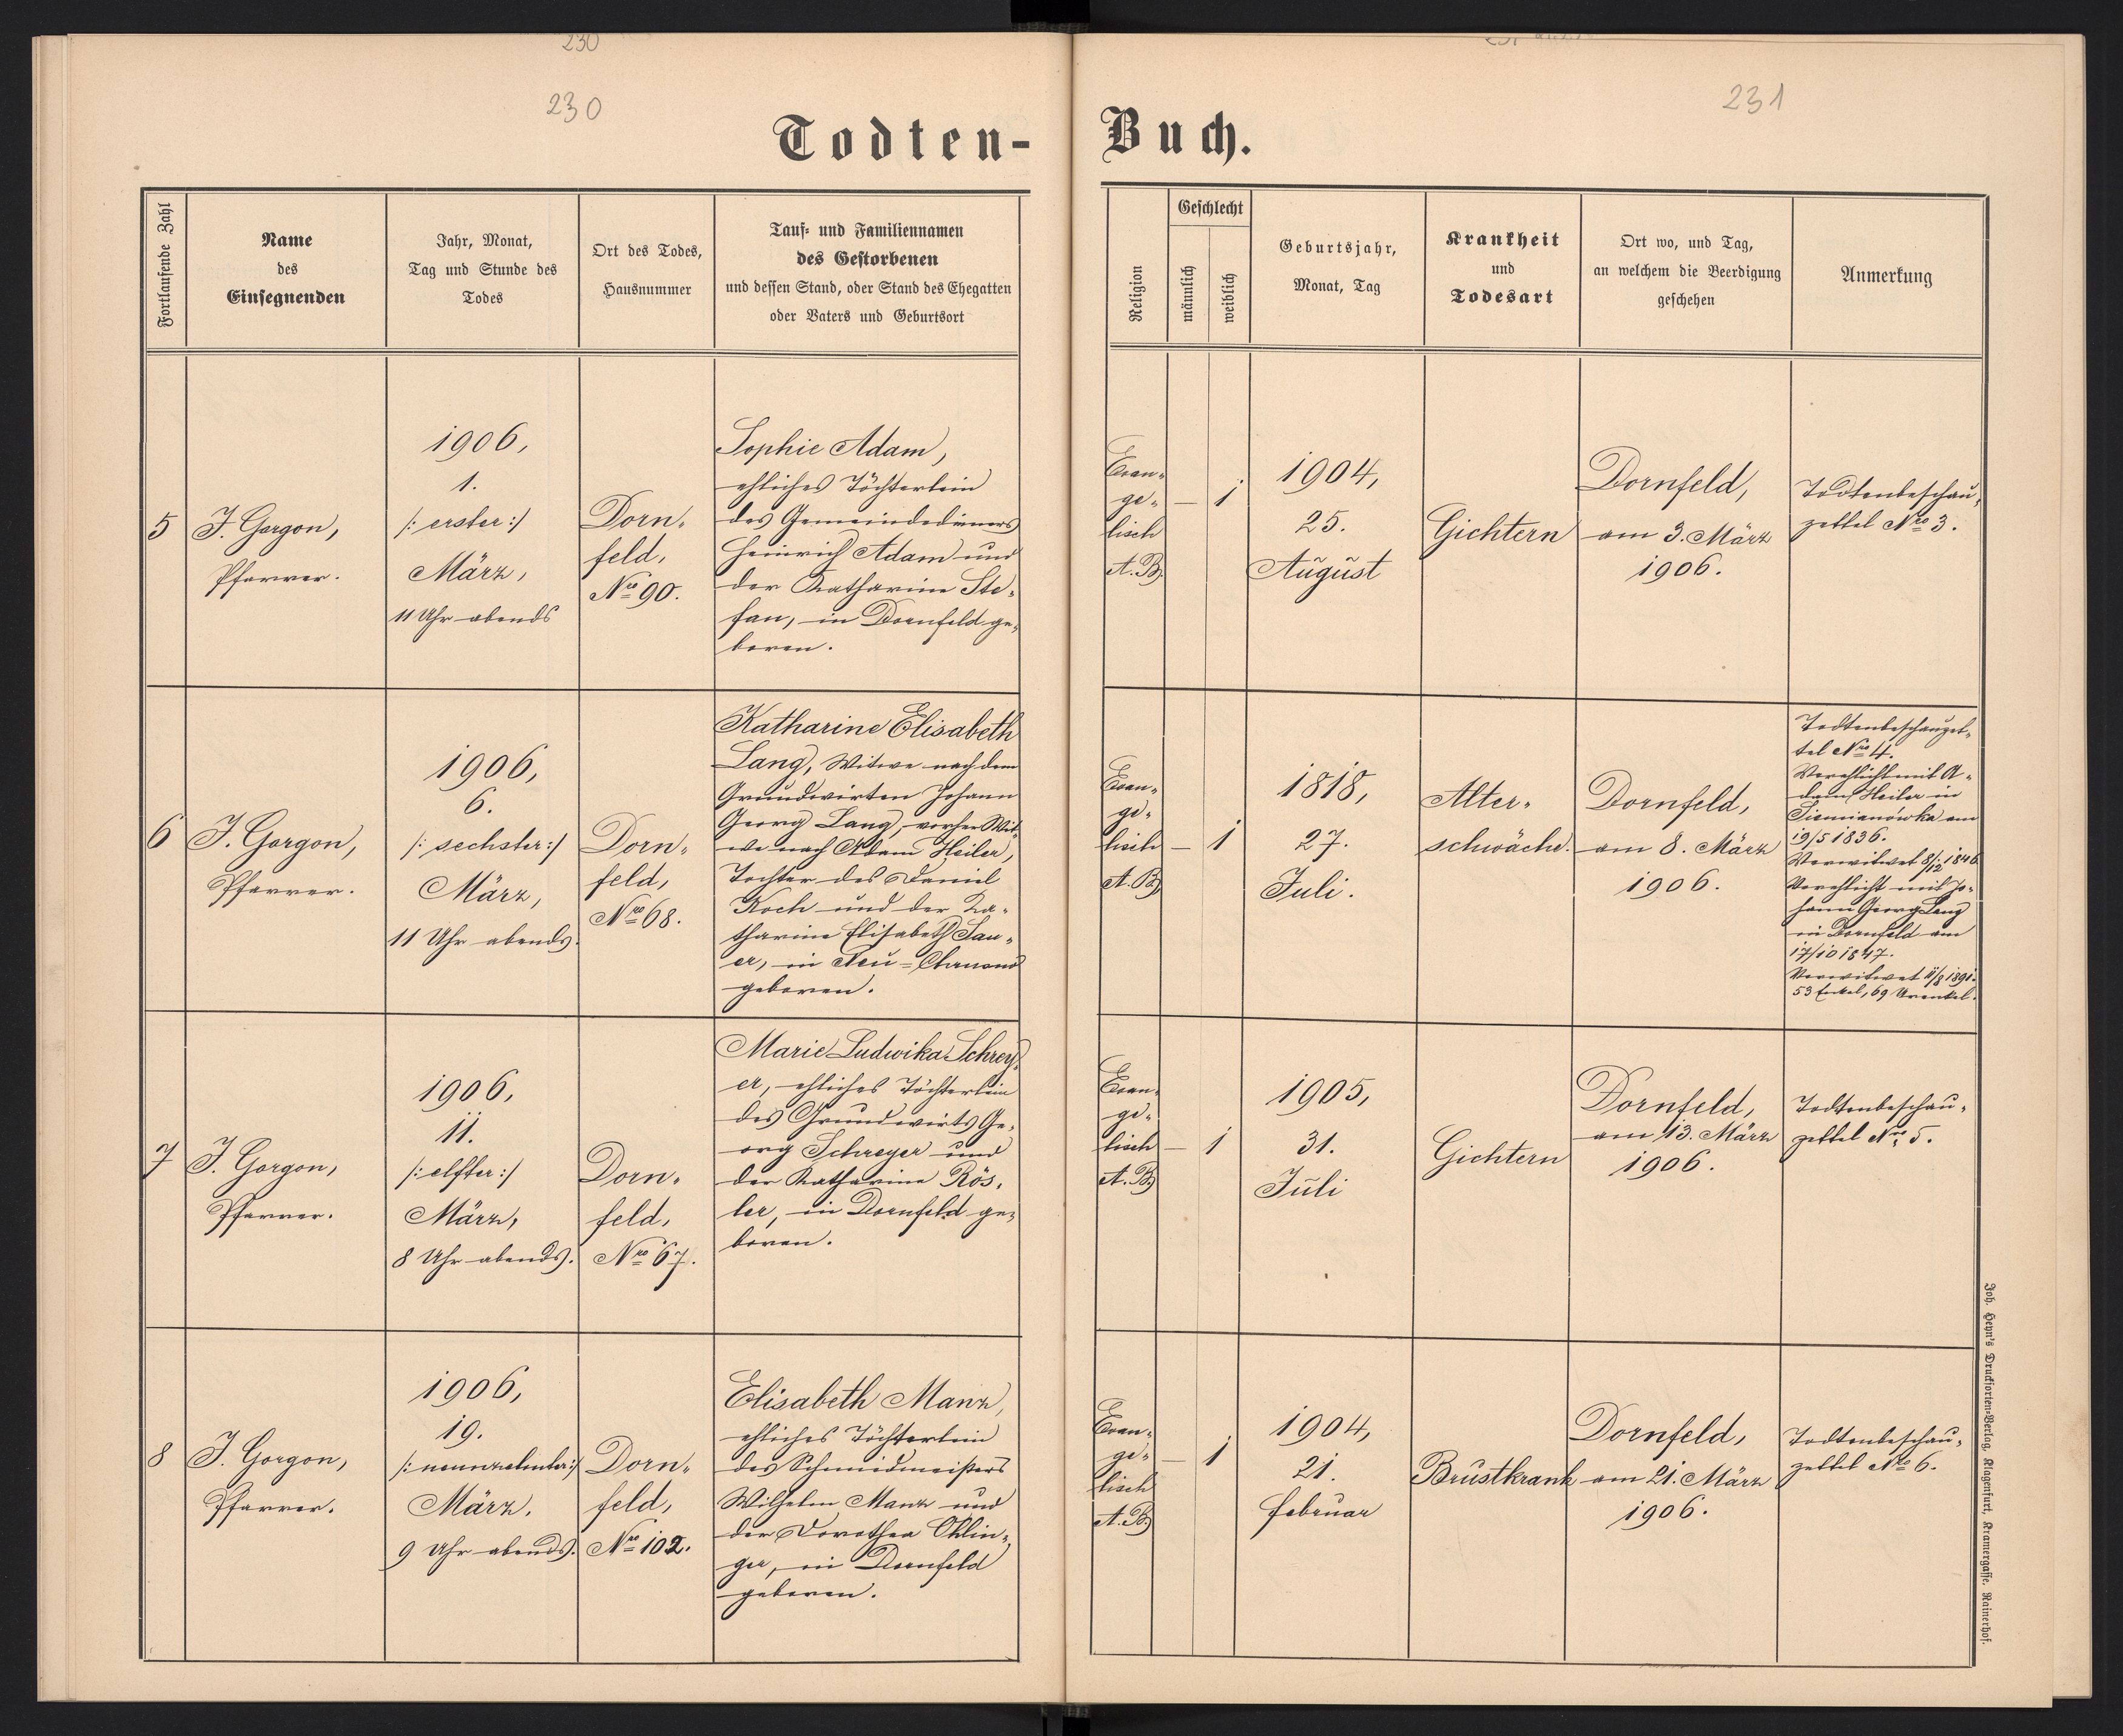 230
230
231
Todten-
Buch.
Fortlaufende Zahl
Name
des
Einsegnenden
Jahr, Monat,
Tag und Stunde des
Todes
Ort des Todes,
Hausnummer
Tauf- und Familiennamen
des Gestorbenen
und dessen Stand, oder Stand des Ehegatten
oder Vaters und Geburtsort
Religion
Geschlecht
männlich
weiblich
Geburtsjahr,
Monat, Tag
Krankheit
und
Todesart
Ort wo, und Tag,
an welchem die Beerdigung
geschehen
Anmerkung
5
J. Gorgon,
Pfarrer.
1906,
1.
/: erster :/
März,
11 Uhr abends
Dorn-
feld,
Nro 90.
Sophie Adam,
ehliches Töchterlein
des Gemeindedieners
Heinrich Adam und
der Katharine Ste-
fan, in Dornfeld ge-
boren.
Evan-
ge-
lisch
A. B.
—
1
1904,
25.
August
Gichtern
Dornfeld,
am 3. März
1906.
Todtenbeschau-
zettel Nro 3.
6
J. Gorgon,
Pfarrer.
1906,
6.
/: sechster :/
März,
11 Uhr abends.
Dorn-
feld,
Nro 68.
Katharine Elisabeth
Lang, Witwe nach dem
Grundwirten Johann
Georg Lang, vorher Wit-
we nach Adam Heiler,
Tochter des Daniel
Koch und der Ka-
tharine Elisabeth Sau-
er, in Neu-Chrusno
geboren.
Evan-
ge-
lisch
A. B.
—
1
1818,
27.
Juli.
Alter-
schwäche.
Dornfeld,
am 8. März
1906.
Todtenbeschauzet-
tel Nro 4.
Verehlicht mit A-
dam Heiler in
Siemianówka am
19/5 1836.
Verwitwet 8/12 1846
Verehlicht mit Jo-
hann Georg Lang
in Dornfeld am
17/10 1847.
Verwitwet 11/8 1891.
53 Enkel, 69 Urenkel.
7
J. Gorgon,
Pfarrer.
1906,
11.
/: elfter :/
März,
8 Uhr abends.
Dorn-
feld,
Nro 67.
Marie Ludwika Schrey-
er, ehliches Töchterlein
des Grundwirts Ge-
org Schreyer und
der Katharina Rös-
ler, in Dornfeld ge-
boren.
Evan-
ge-
lisch
A. B.
—
1
1905,
31.
Juli
Gichtern
Dornfeld,
am 13. März
1906.
Todtenbeschau-
zettel Nro 5.
8
J. Gorgon,
Pfarrer.
1906,
19.
/: neunzehnter :/
März,
9 Uhr abends.
Dorn-
feld,
Nro 102.
Elisabeth Manz,
ehliches Töchterlein
des Schmidmeisters
Wilhelm Manz und
der Dorothea Ohlin-
ger, in Dornfeld
geboren.
Evan-
ge-
lisch
A. B.
—
1
1904,
21.
februar
Brustkrank
Dornfeld,
am 21. März
1906.
Todtenbeschau-
zettel No 6.
Joh. Heyn's Drucksorten-Verlag, Klagenfurt, Kramergasse, Rainerhof.